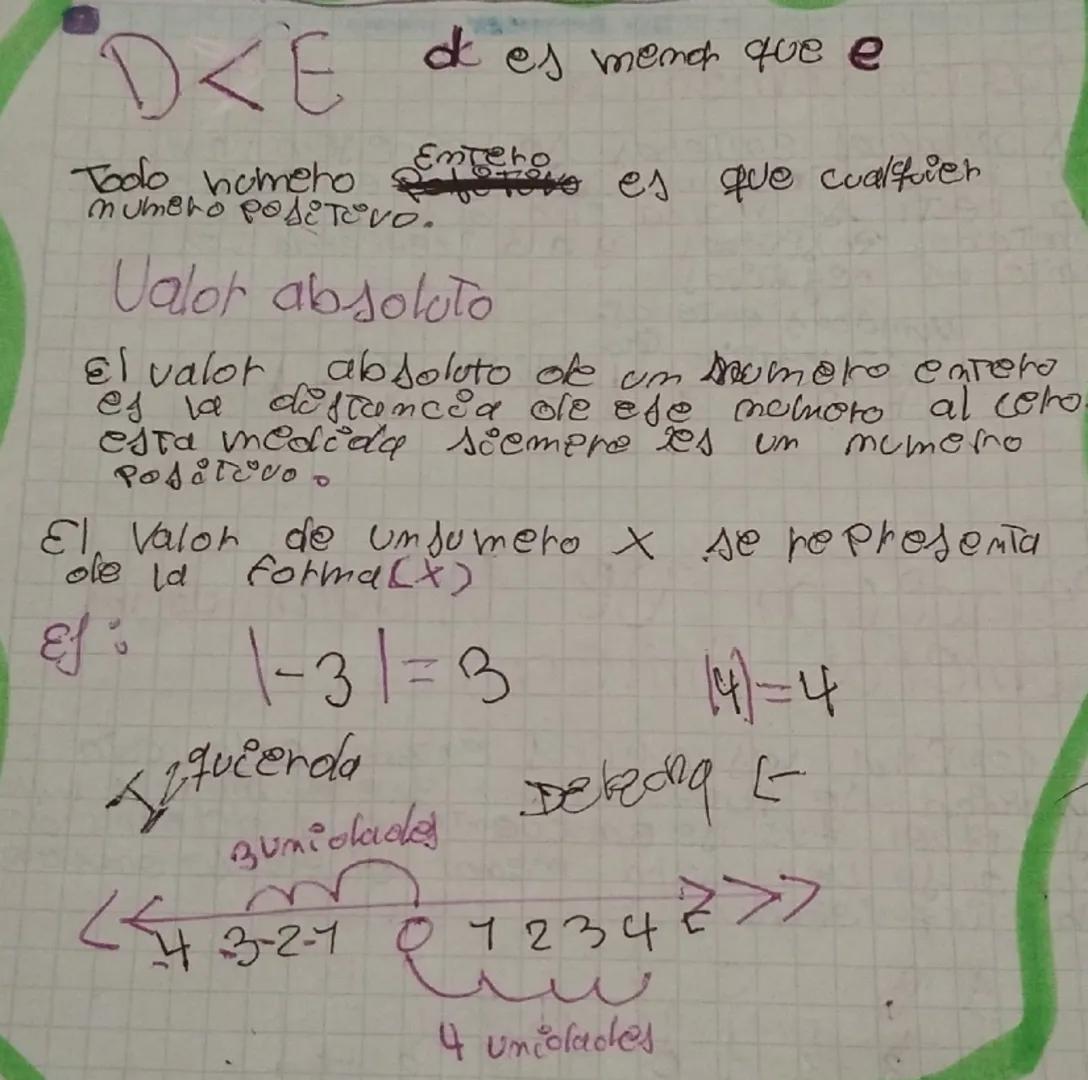 D<E d es menor que e
Todo numero Entero es que cualquier
numero positivo.
Valor absoluto
El valor absoluto de un numero entero
es la distancia de ese numero al cero
esta medida siempre es un numero
positivo.
El Valor de un numero x se representa
de la forma (x)
Ej:
|-3|=3 |4|=4
Izquierda Derecha
3 unidades
-4 -3 -2 -1 0 1 2 3 4
4 unidades